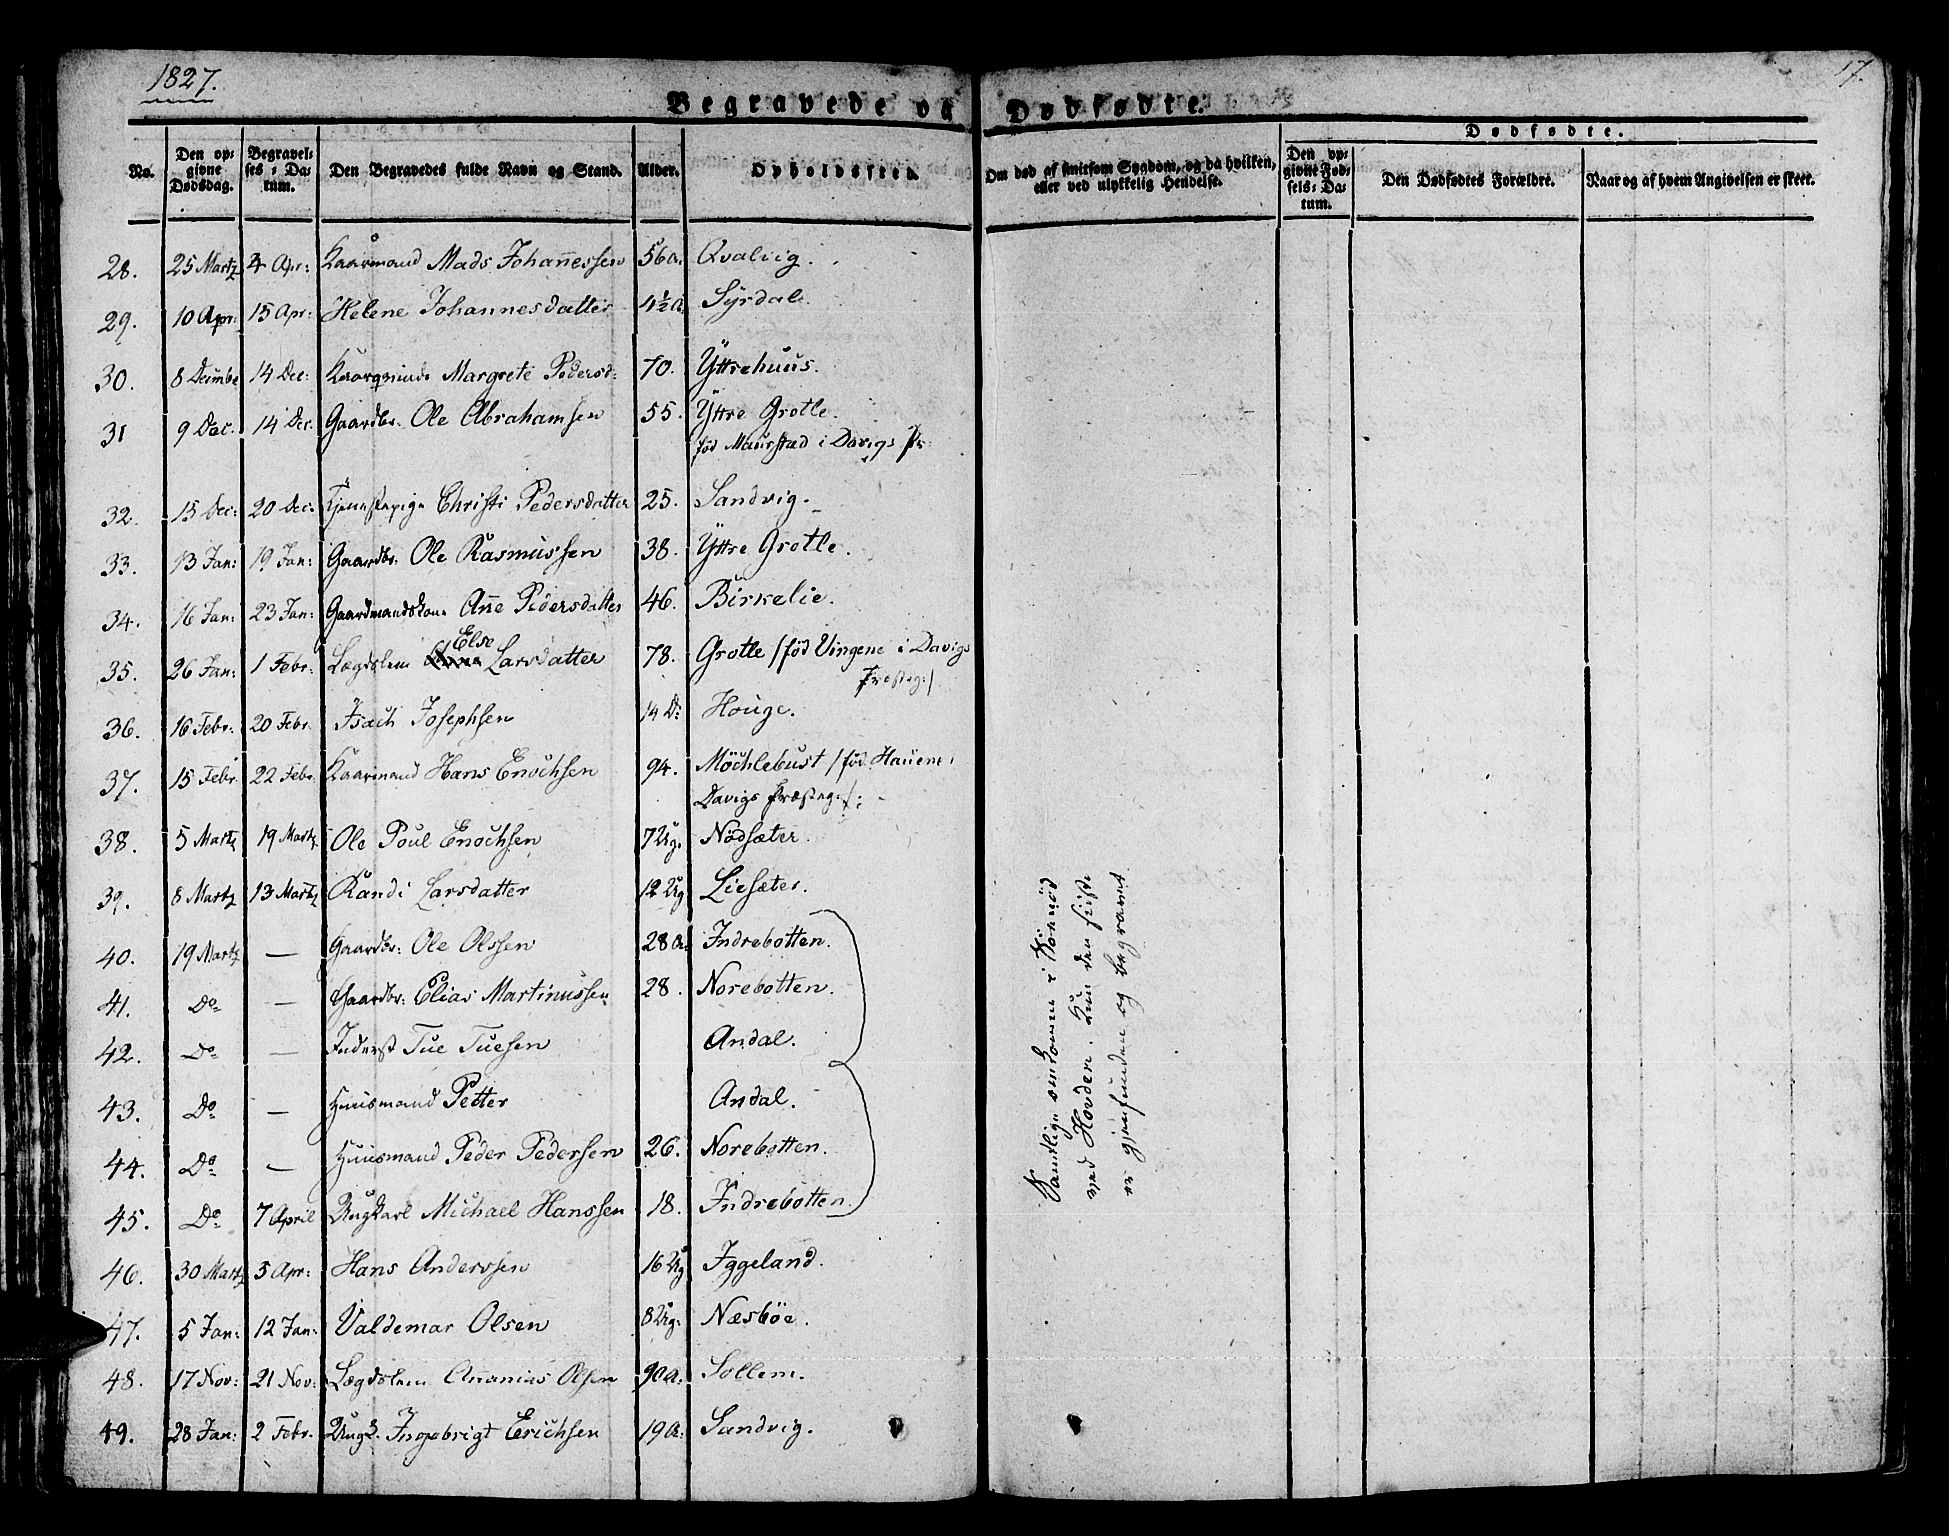 1827.
17.
Begravede og Dødfødte.
Dødfødte.
No.
Den opgivne Dødsdag.
Begravelses-Datum.
Den Begravedes fulde Navn og Stand.
Alder.
Opholdssted.
Om død af smitsom Sygdom, og da hvilken, eller ved ulykkelig Hendelse.
Den opgivne Fødsels-Datum.
Den Dødfødtes Forældre.
Naar og af hvem Angivelsen er skeet.
28. 25 Martz 4 Apr: Kaarmand Mads Johannessen 56 a. Qvalvig.
29. 10 Apr: 15 Apr: Helene Johannesdatter 4½ a. Syrdal.
30. 8 14 Dec: Margrete Pedersd: 70. Yttrehuus.
31 9 Dec. 14 Dec. Gaardbr. Ole Abrahamsen 55. Yttre Grotle.
fød Maurstad i Davigs Pr:
32. 15 Dec: 20 Dec. Tjenestepige Christi Pedersdatter 25. Sandvig.
33. 13 Jan: 19 Jan: Gaardbr. Ole Rasmussen 38. Yttre Grotle.
34. 16 Jan: 23 Jan: Gaardmandskone Añe Pedersdatter 46. Birkelie.
35. 26 Jan: 1 Febr: Lægdslem Else Larsdatter 78. Grotle /fød Vingene i Davigs
Præsteg:/
36. 16 Febr. 20 Febr. Isach Josephsen 14 D: Houge.
37. 15 Febr. 22 Febr. Kaarmand Hans Enochsen 94. Möchlebust /fød. Hauene i
Davigs Præsteg:/:
38. 5 Martz 19 Martz Ole Poul Enochsen 7 Ug. Nödsæter.
39. 8 Martz 13 Martz Randi Larsdatter 12 Ug Liesæter.
40. 19 Martz — Gaardbr: Ole Olssen 28 a. Indrebotten.
41. Do — Gaardbr: Elias Martinussen 28. Norebotten.
42. Do — Inderst Tue Tuesen Andal.
43. Do — Huusmand Petter Andal.
44. Do — Huusmand Peder Pedersen 26. Norebotten.
45. Do 7 April Ungkarl Michael Hanssen 18. Indrebotten.
Samtlige omkomne i Sønød
ved Hovden. Kun den sidste
er gjenfunden og begravet
46. 30 Martz 5 Apr: Hans Anderssen 16 Ug Iggeland.
47. 5 Jan: 12 Jan: Valdemar Olsen 8 Ug: Næsböe.
48. 17 Nov: 21 Nov: Lægdslem Ananias Olsen 90 a. Sollem.
49. 28 Jan: 2 Febr. Ungk. Ingebrigt Erichsen 19 a: Sandvig.